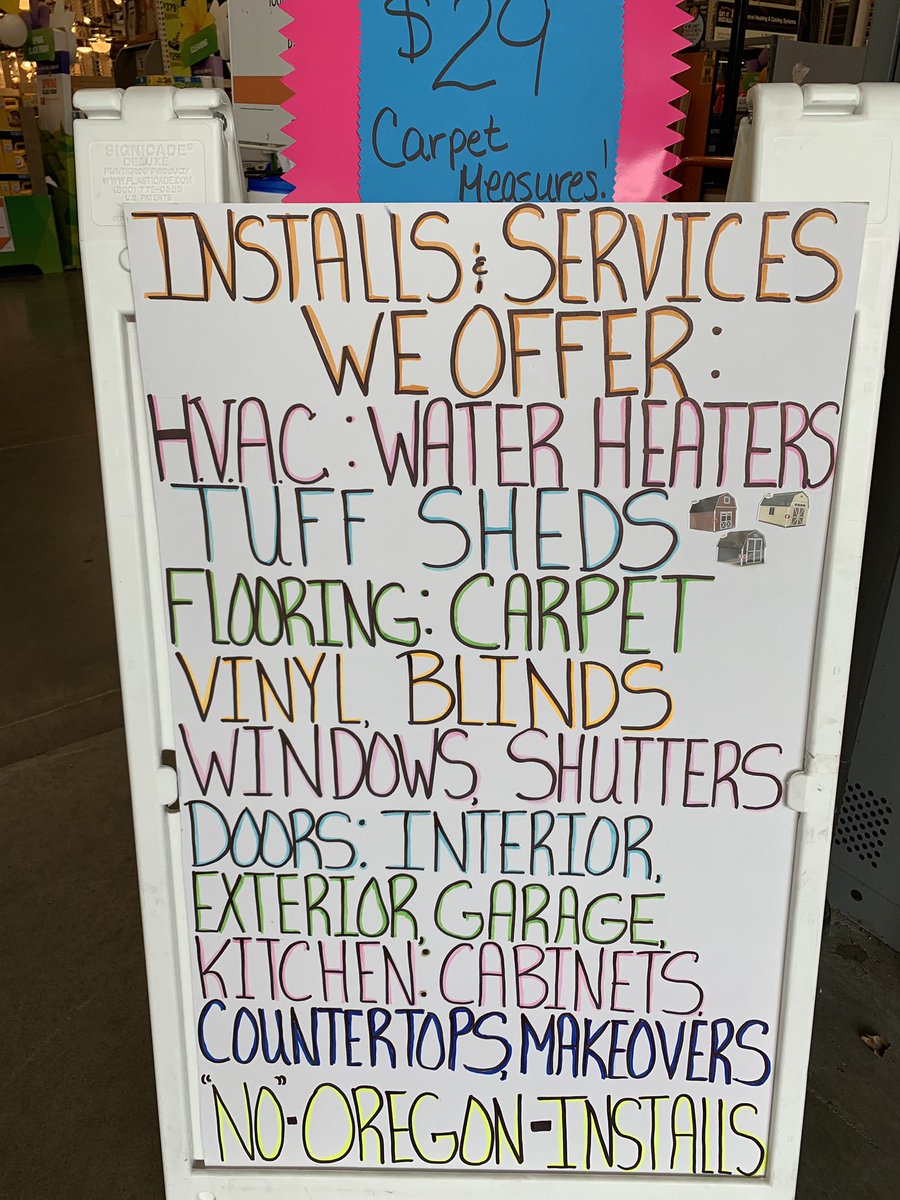 $29
Carpet
Measures!
CLEANING
SIGNICADE®
DELUXE
PLASTICADE® PRODUCT
WWW.PLASTICADE.COM
(800) 772-0355
U.S. PATENTS
INSTALLS & SERVICES
WE OFFER:
H.V.A.C: WATER HEATERS
TUFF SHEDS
FLOORING: CARPET
VINYL, BLINDS
WINDOWS, SHUTTERS
DOORS: INTERIOR,
EXTERIOR, GARAGE,
KITCHEN: CABINETS,
COUNTERTOPS, MAKEOVERS
"NO"-OREGON-INSTALLS